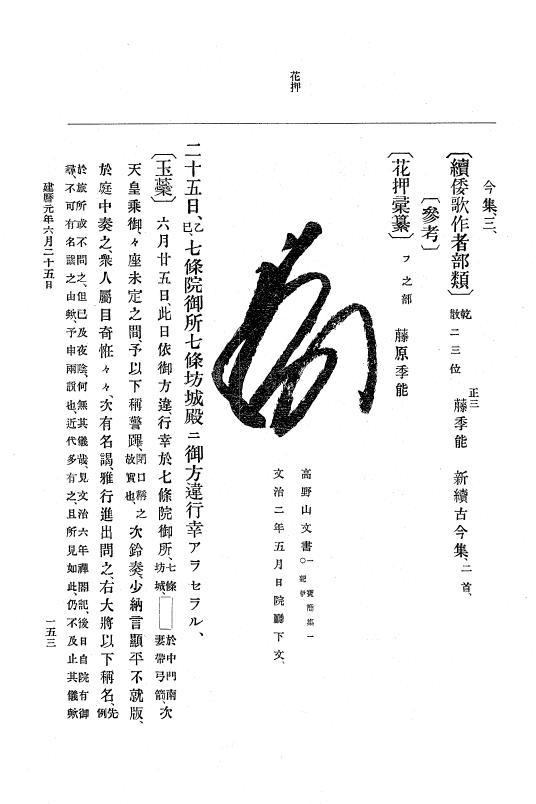 花押
今集三、
〔續倭歌作者部類〕乾 散二三位 正三 藤季能 新續古今集、二首、
〔參考〕
〔花押彙纂〕フ之部 藤原季能
高野山文書 一 寶簡集一 ○紀伊
文治二年五月日院廳下文、
二十五日、乙巳、七條院御所七條坊城殿ニ御方違行幸アラセラル、
〔玉蘂〕六月廿五日、此日依御方違、行幸於七條院御所、七條坊城、 於中門南妻帶弓箭、次
天皇乘御、々座未定之間、予以下稱警蹕、閉口稱之故實也、次鈴奏、少納言顯平不就版、
於庭中奏之、衆人屬目奇恠々々、次有名謁、雅行進出問之、右大將以下稱名、先例
於旅所或不問之、但已及夜陰、何無其儀哉、見文治六年禪閤記、後日自院有御
尋、不可有名謁之由歟、予申兩說也、近代多有之、且所見如此、仍不及止其儀歟
建曆元年六月二十五日
一五三